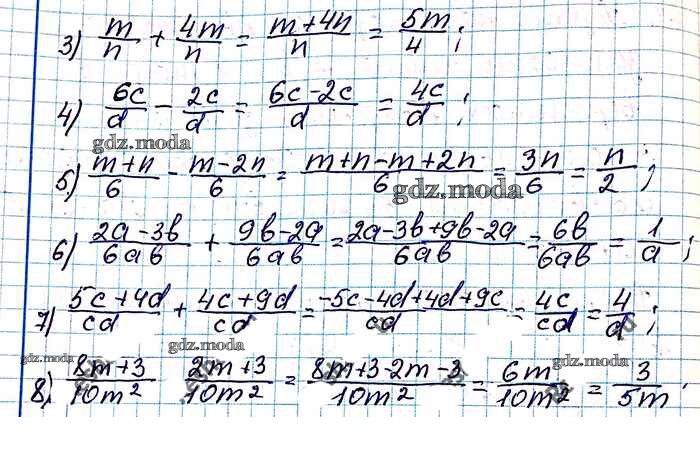 3) m/n + 4m/n = m+4n/n = 5m/4 ;
4) 6c/d - 2c/d = 6c-2c/d = 4c/d ;
gdz.moda
5) m+n/6 - m-2n/6 = m+n-m+2n/6 = 3n/6 = n/2 ;
gdz.moda
6) 2a-3b/6ab + 9b-2a/6ab = 2a-3b+9b-2a/6ab = 6b/6ab = 1/a ;
7) 5c+4d/cd + 4c+9d/cd = -5c-4d+4d+9c/cd = 4c/cd = 4/d ;
gdz.moda
gdz.moda gdz.moda
8) 8m+3/10m² 2m+3/10m² = 8m+3-2m-3/10m² = 6m/10m² = 3/5m